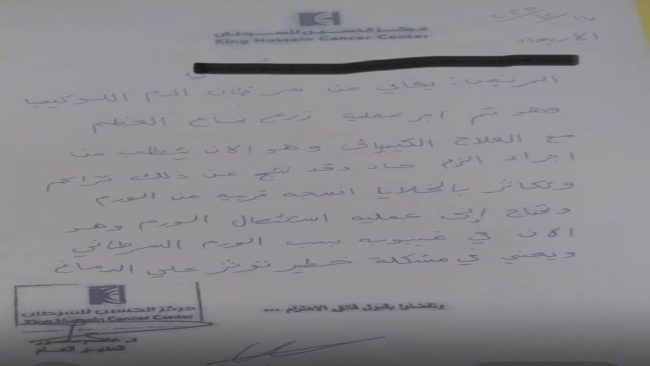 مركز الحسين للسرطان
King Hussein Cancer Center
الاربعاء
المريض: يعاني من سرطان الدم اللوكيميا
وهو تم اجر عملية زرع نخاع العظم
مع العلاج الكيماوي وهو الان يتطلب منا
اجراء الزم حاد وقد نتج عن ذلك تراكم
وتكاثر بالخلايا انسجه قريبه من الورم
ونحتاج إلى عمليه استئصال الورم وهو
الان في غيبوبه بسبب الورم السرطاني
ويعني في مشكلة خطير تؤثر علي الدماغ
وتفضلوا بقبول فائق الاحترام ...
مركز الحسين للسرطان
King Hussein Cancer Center
المدير العام